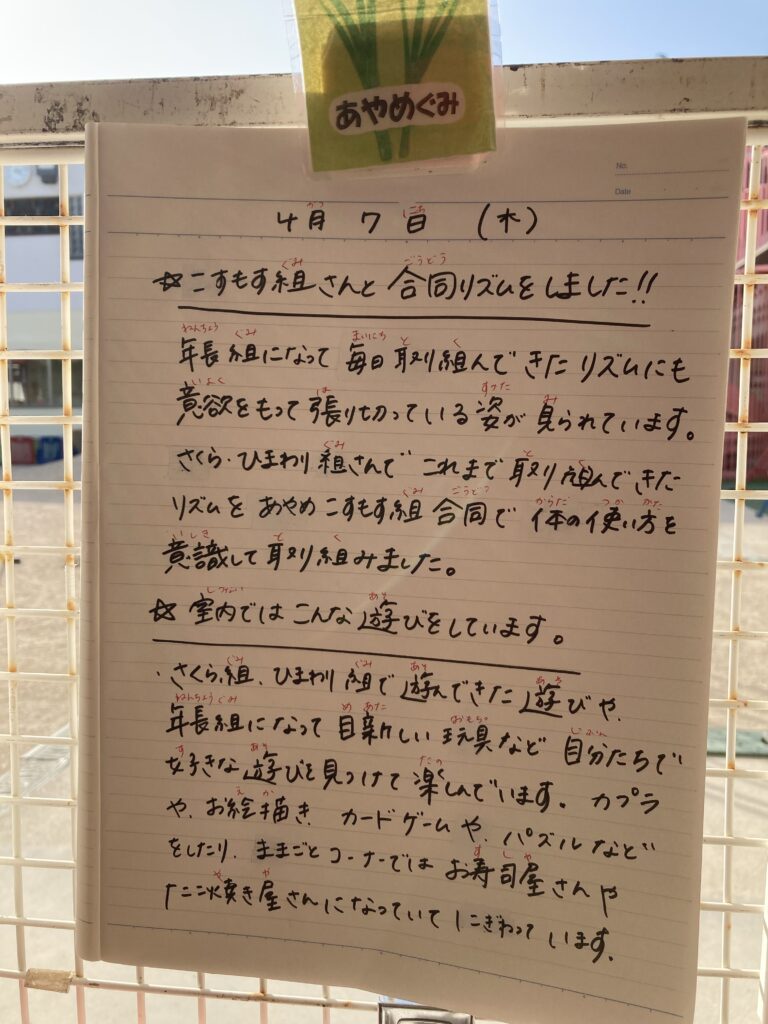 あやめぐみ
No.
Date
4月 7日 (木)
☆こすもす組さんと 合同リズムをしました!!
年長組になって 毎日取り組んできた リズムにも
意欲をもって張り切っている姿が 見られています。
さくら・ひまわり組さんで これまで取り組んできた
リズムを あやめこすもす組合同で 体の使い方を
意識して取り組みました。
☆ 室内では こんな遊びをしています。
・さくら組、ひまわり組で遊んできた遊びや、
年長組になって目新しい玩具など 自分たちで
好きな遊びを見つけて楽しんでいます。カプラ
や、お絵描き、カードゲームや、パズルなど
をしたり、ままごとコーナーでは お寿司屋さんや
たこ焼き屋さんになっていて にぎわって います。